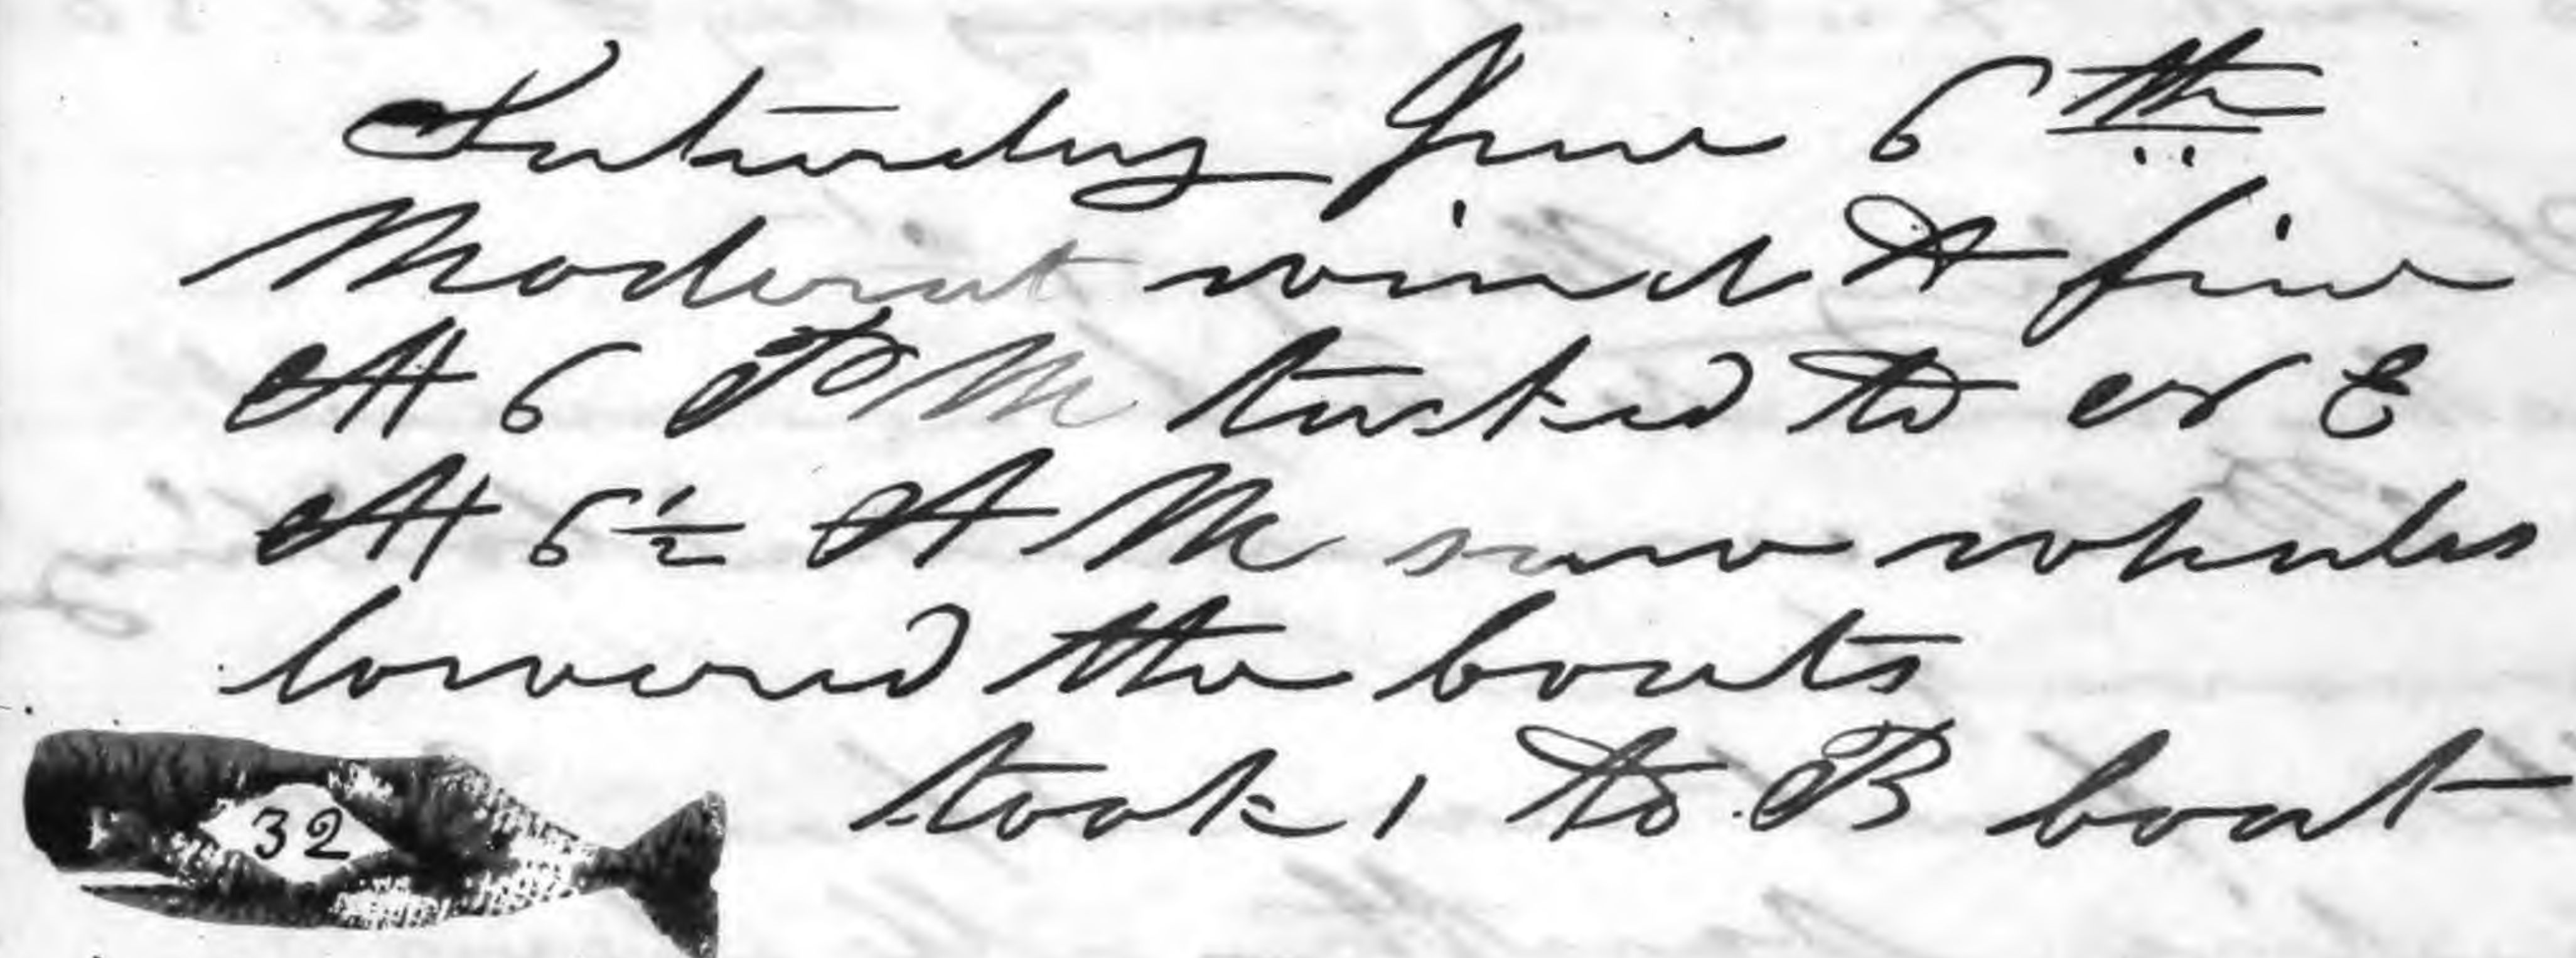 Saturday June 6th
Moderat wind & fine
At 6 PM tacked to N E
At 6 1/2 A M saw whales
lowered the boats
took 1 to B boat
32